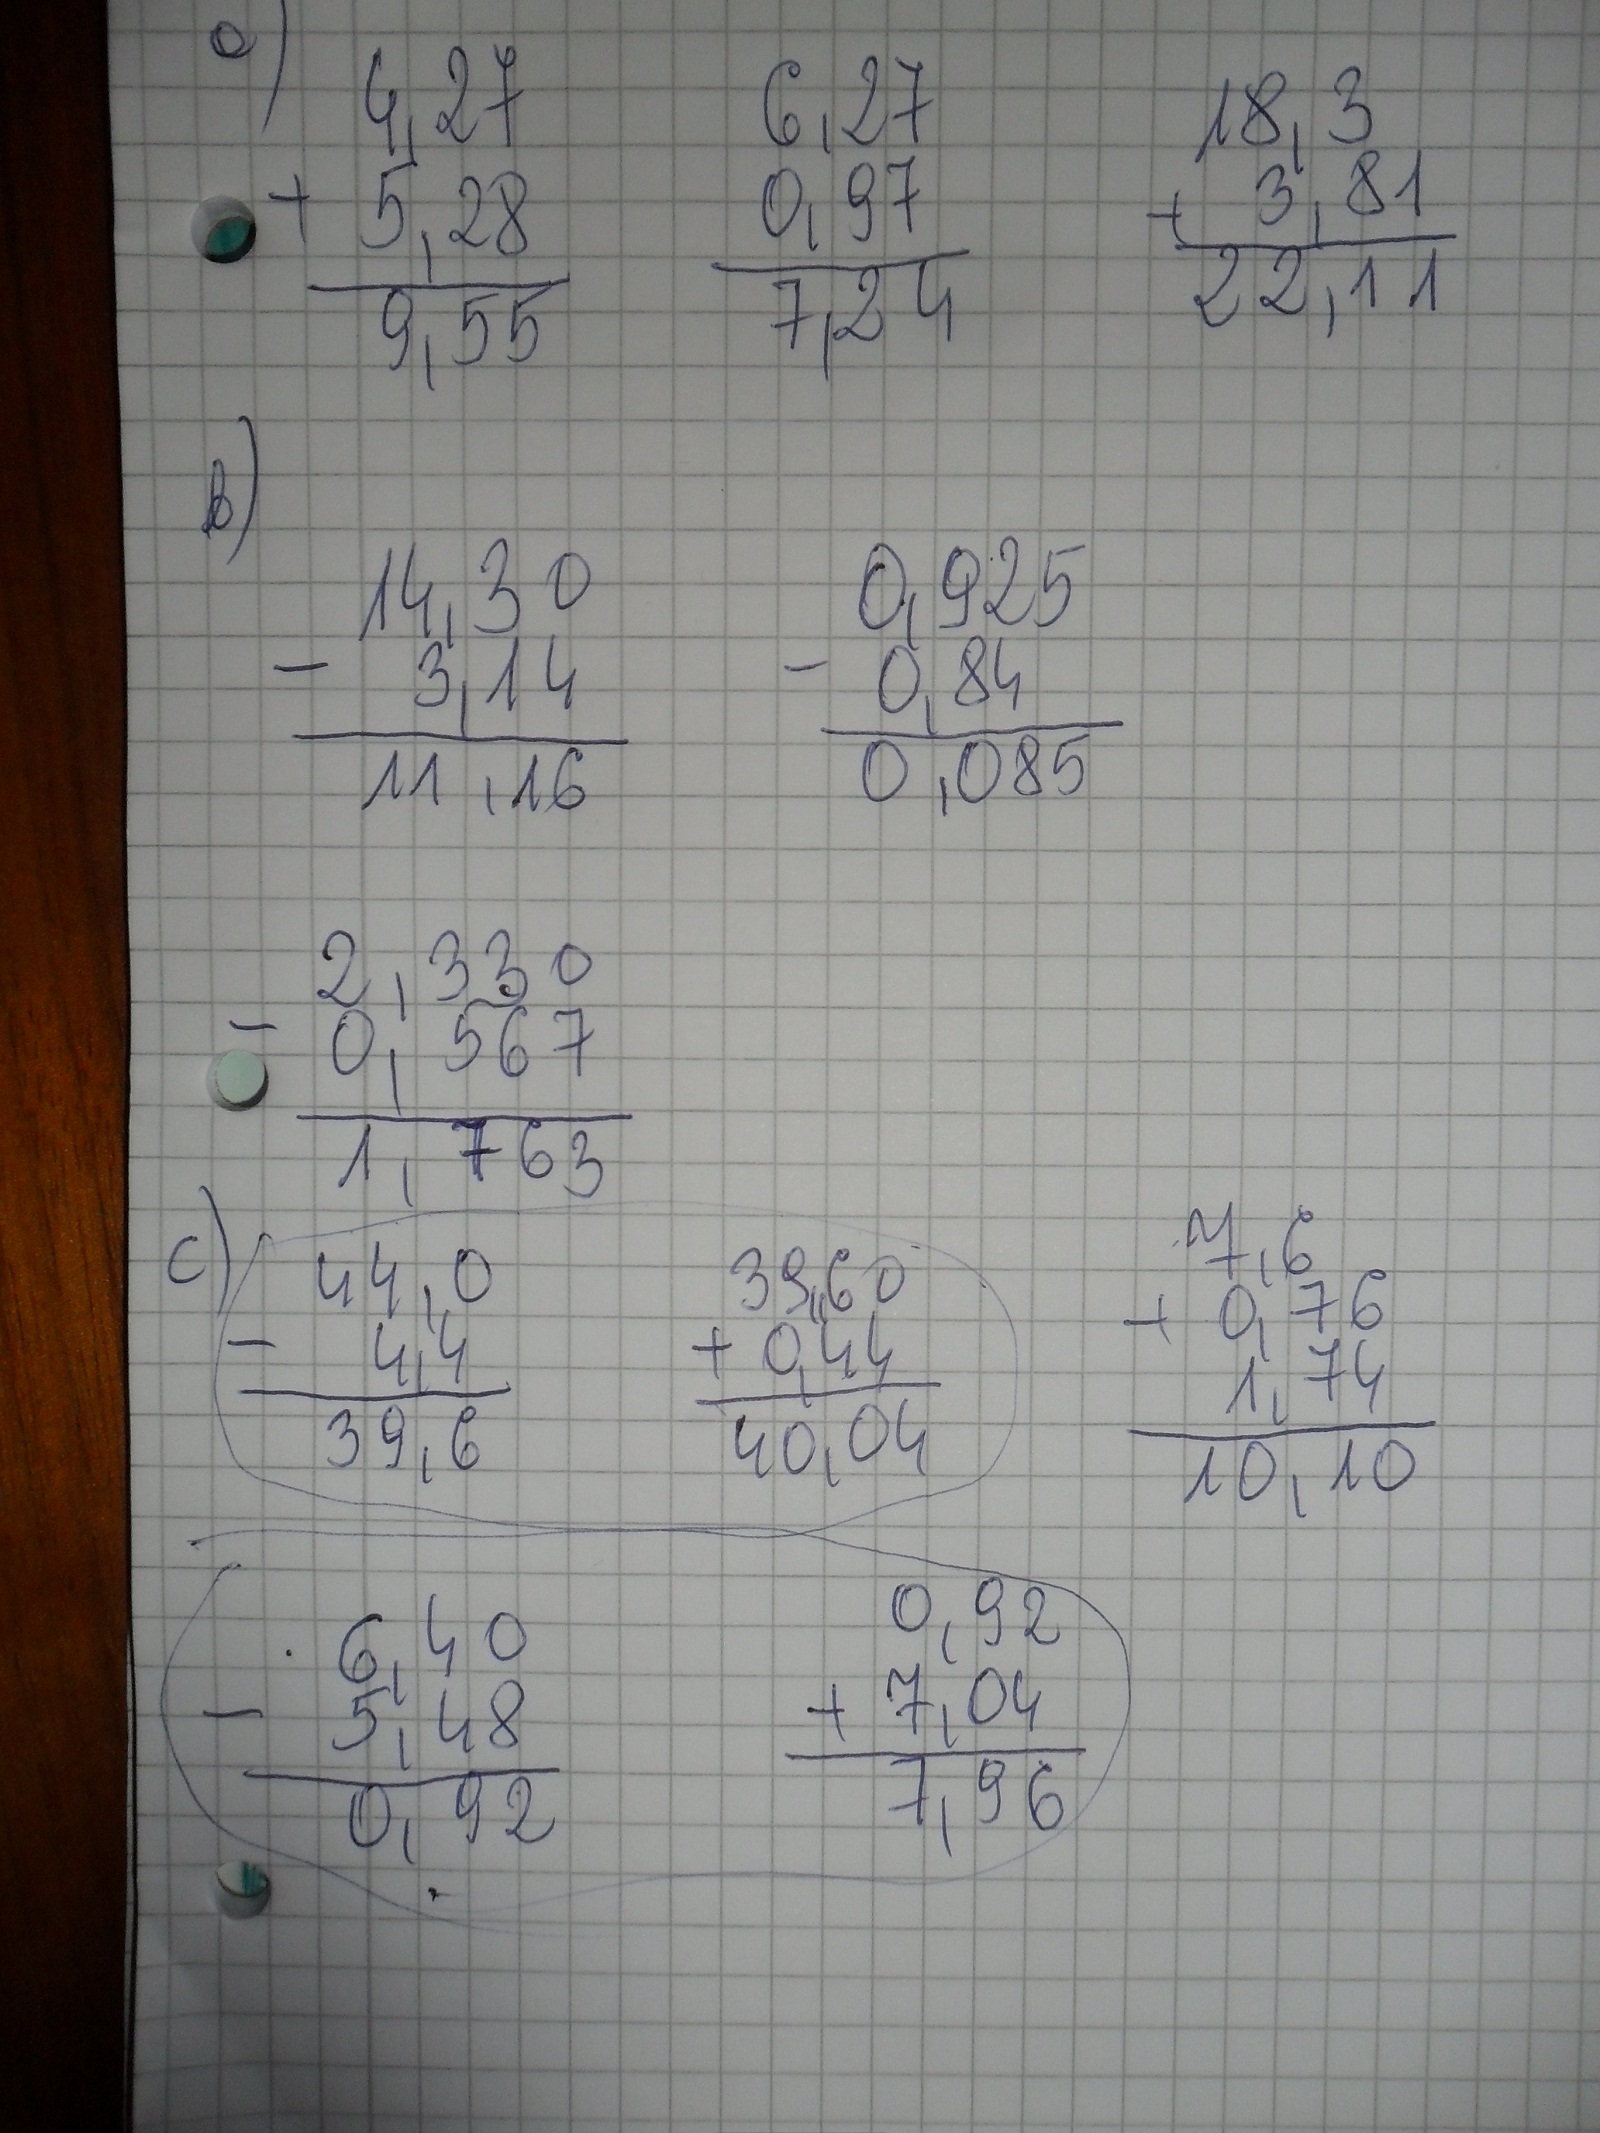 a)
4,27 6,27 18,3
+ 5,28 0,97 + 3,81
9,55 7,24 22,11
b)
14,30 0,925
- 3,14 - 0,84
11,16 0,085
2,330
- 0,567
1,763
c)
44,0 39,60 7,6
- 4,4 + 0,44 + 0,76
1,74
39,6 40,04 10,10
6,40 0,92
- 5,48 + 7,04
0,92 7,96